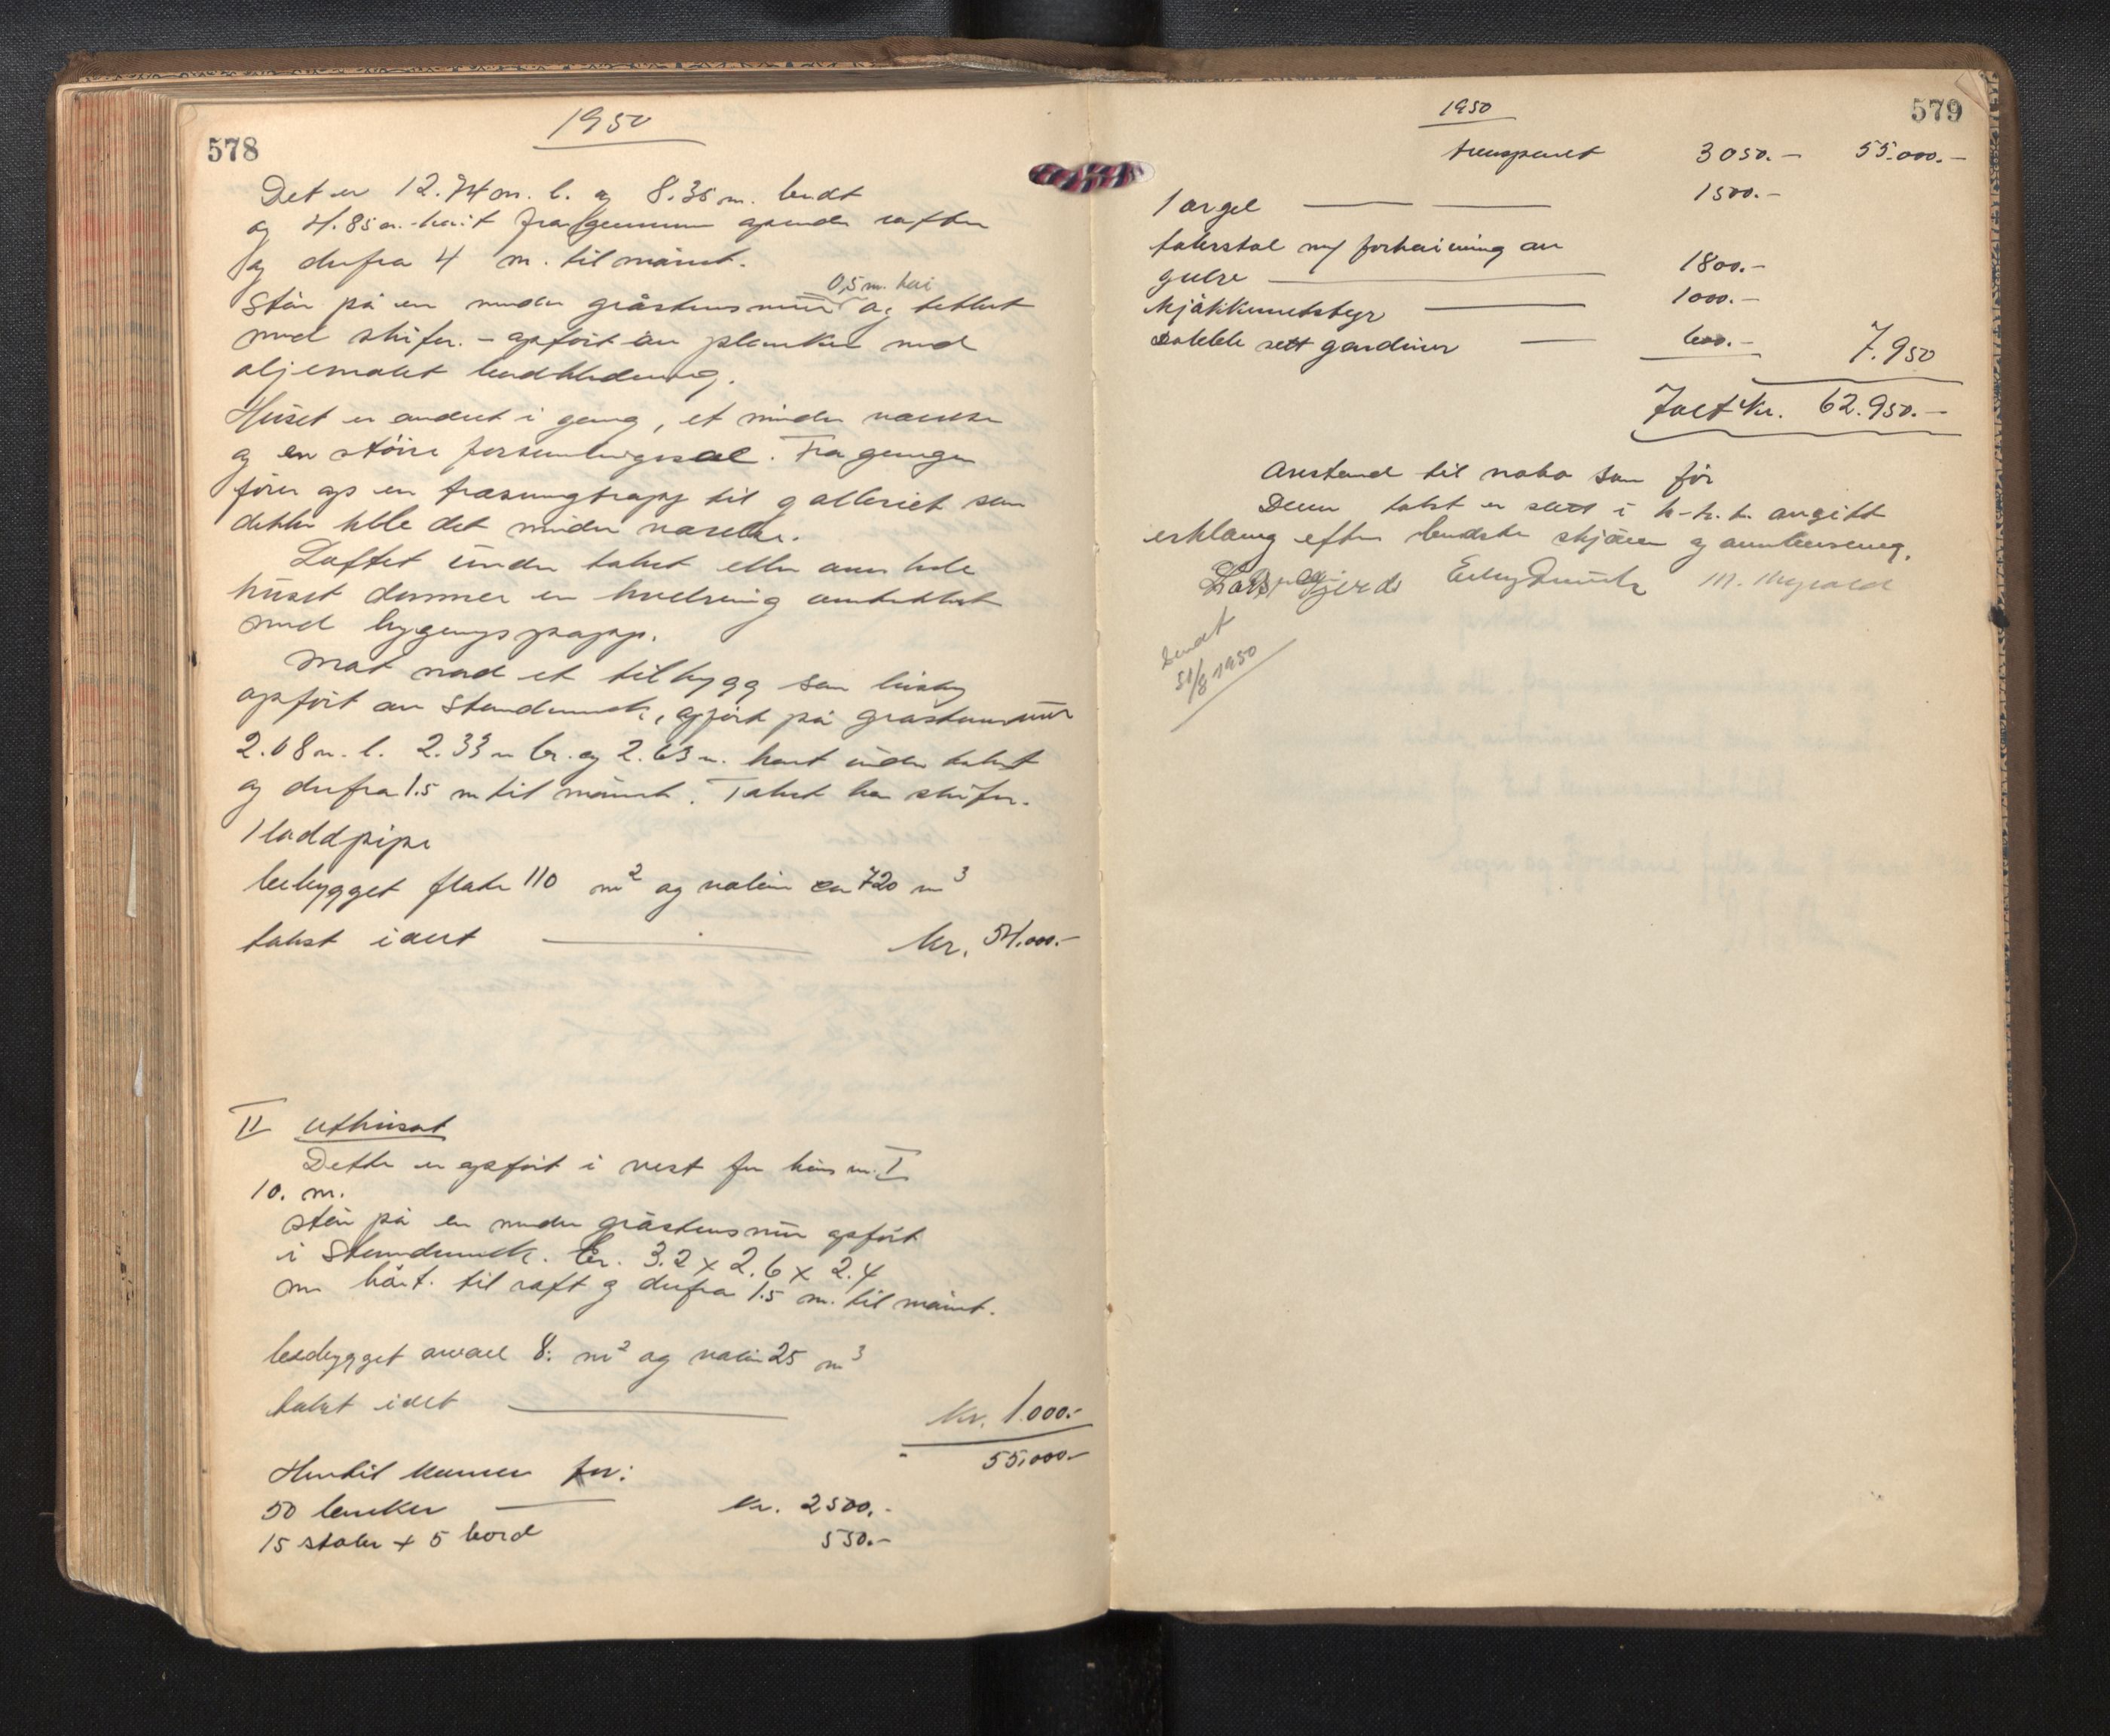 578
1950
Det er 12.74 m. l. og 8.35 m. bredt
og 4.85 m. høit fra grunnmur op under raften
og derfra 4 m. til mønet.
0,5 m. høi
Står på en mindre gråstensmur og tekket
med skifer. – opført av planker med
oljemalet bordkledning.
Huset er innredet i gang, et mindre værelse
og en større forsamlingssal. Fra gangen
fører op en trasvingtrapp til galleriet som
dekker hele det mindre værelse.
Loftet under taket eller over hele
huset danner en hvelving
med bygningspapp.
Mot nord et tilbygg som
opført av Stenderverk, opført på gråstensmur
2.08 m. l. 2.33 m br. og 2.63 m. høit under taket
og derfra 1.5 m til mønet. Taket har skifer.
1 loddpipe
bebygget flate 110 m² og volum ca 720 m³
takst i alt — kr. 54.000.-
II Uthuset
Dette er opført i vest for hus nr. I
10. m.
står på en mindre gråstensmur opført
i Stenderverk. Ca. 3.2 x 2.6 x 2.4
m høit. til raft og derfra 1.5 m. til mønet.
bebygget areal 8. m² og volum 25 m³
takst i alt — kr. 1.000.-
55.000.-
Hertil kommer for:
50 benker — kr. 2500.-
15 stoler + 5 bord 550.-
579
1950
transport 3050.- 55.000.-
1 orgel — — 1500.-
talerstol m/ forhøining av
gulve — 1800.-
kjøkkenutstyr — 1000.-
Dobble sett gardiner — 600.- 7.950
Ialt kr. 62.950.-
Avstand til nabo som før
Denne takst er satt i h.h.t. avgitt
erklæring efter bedste skjønn og overbevisning.
Sendt
31/8 1950